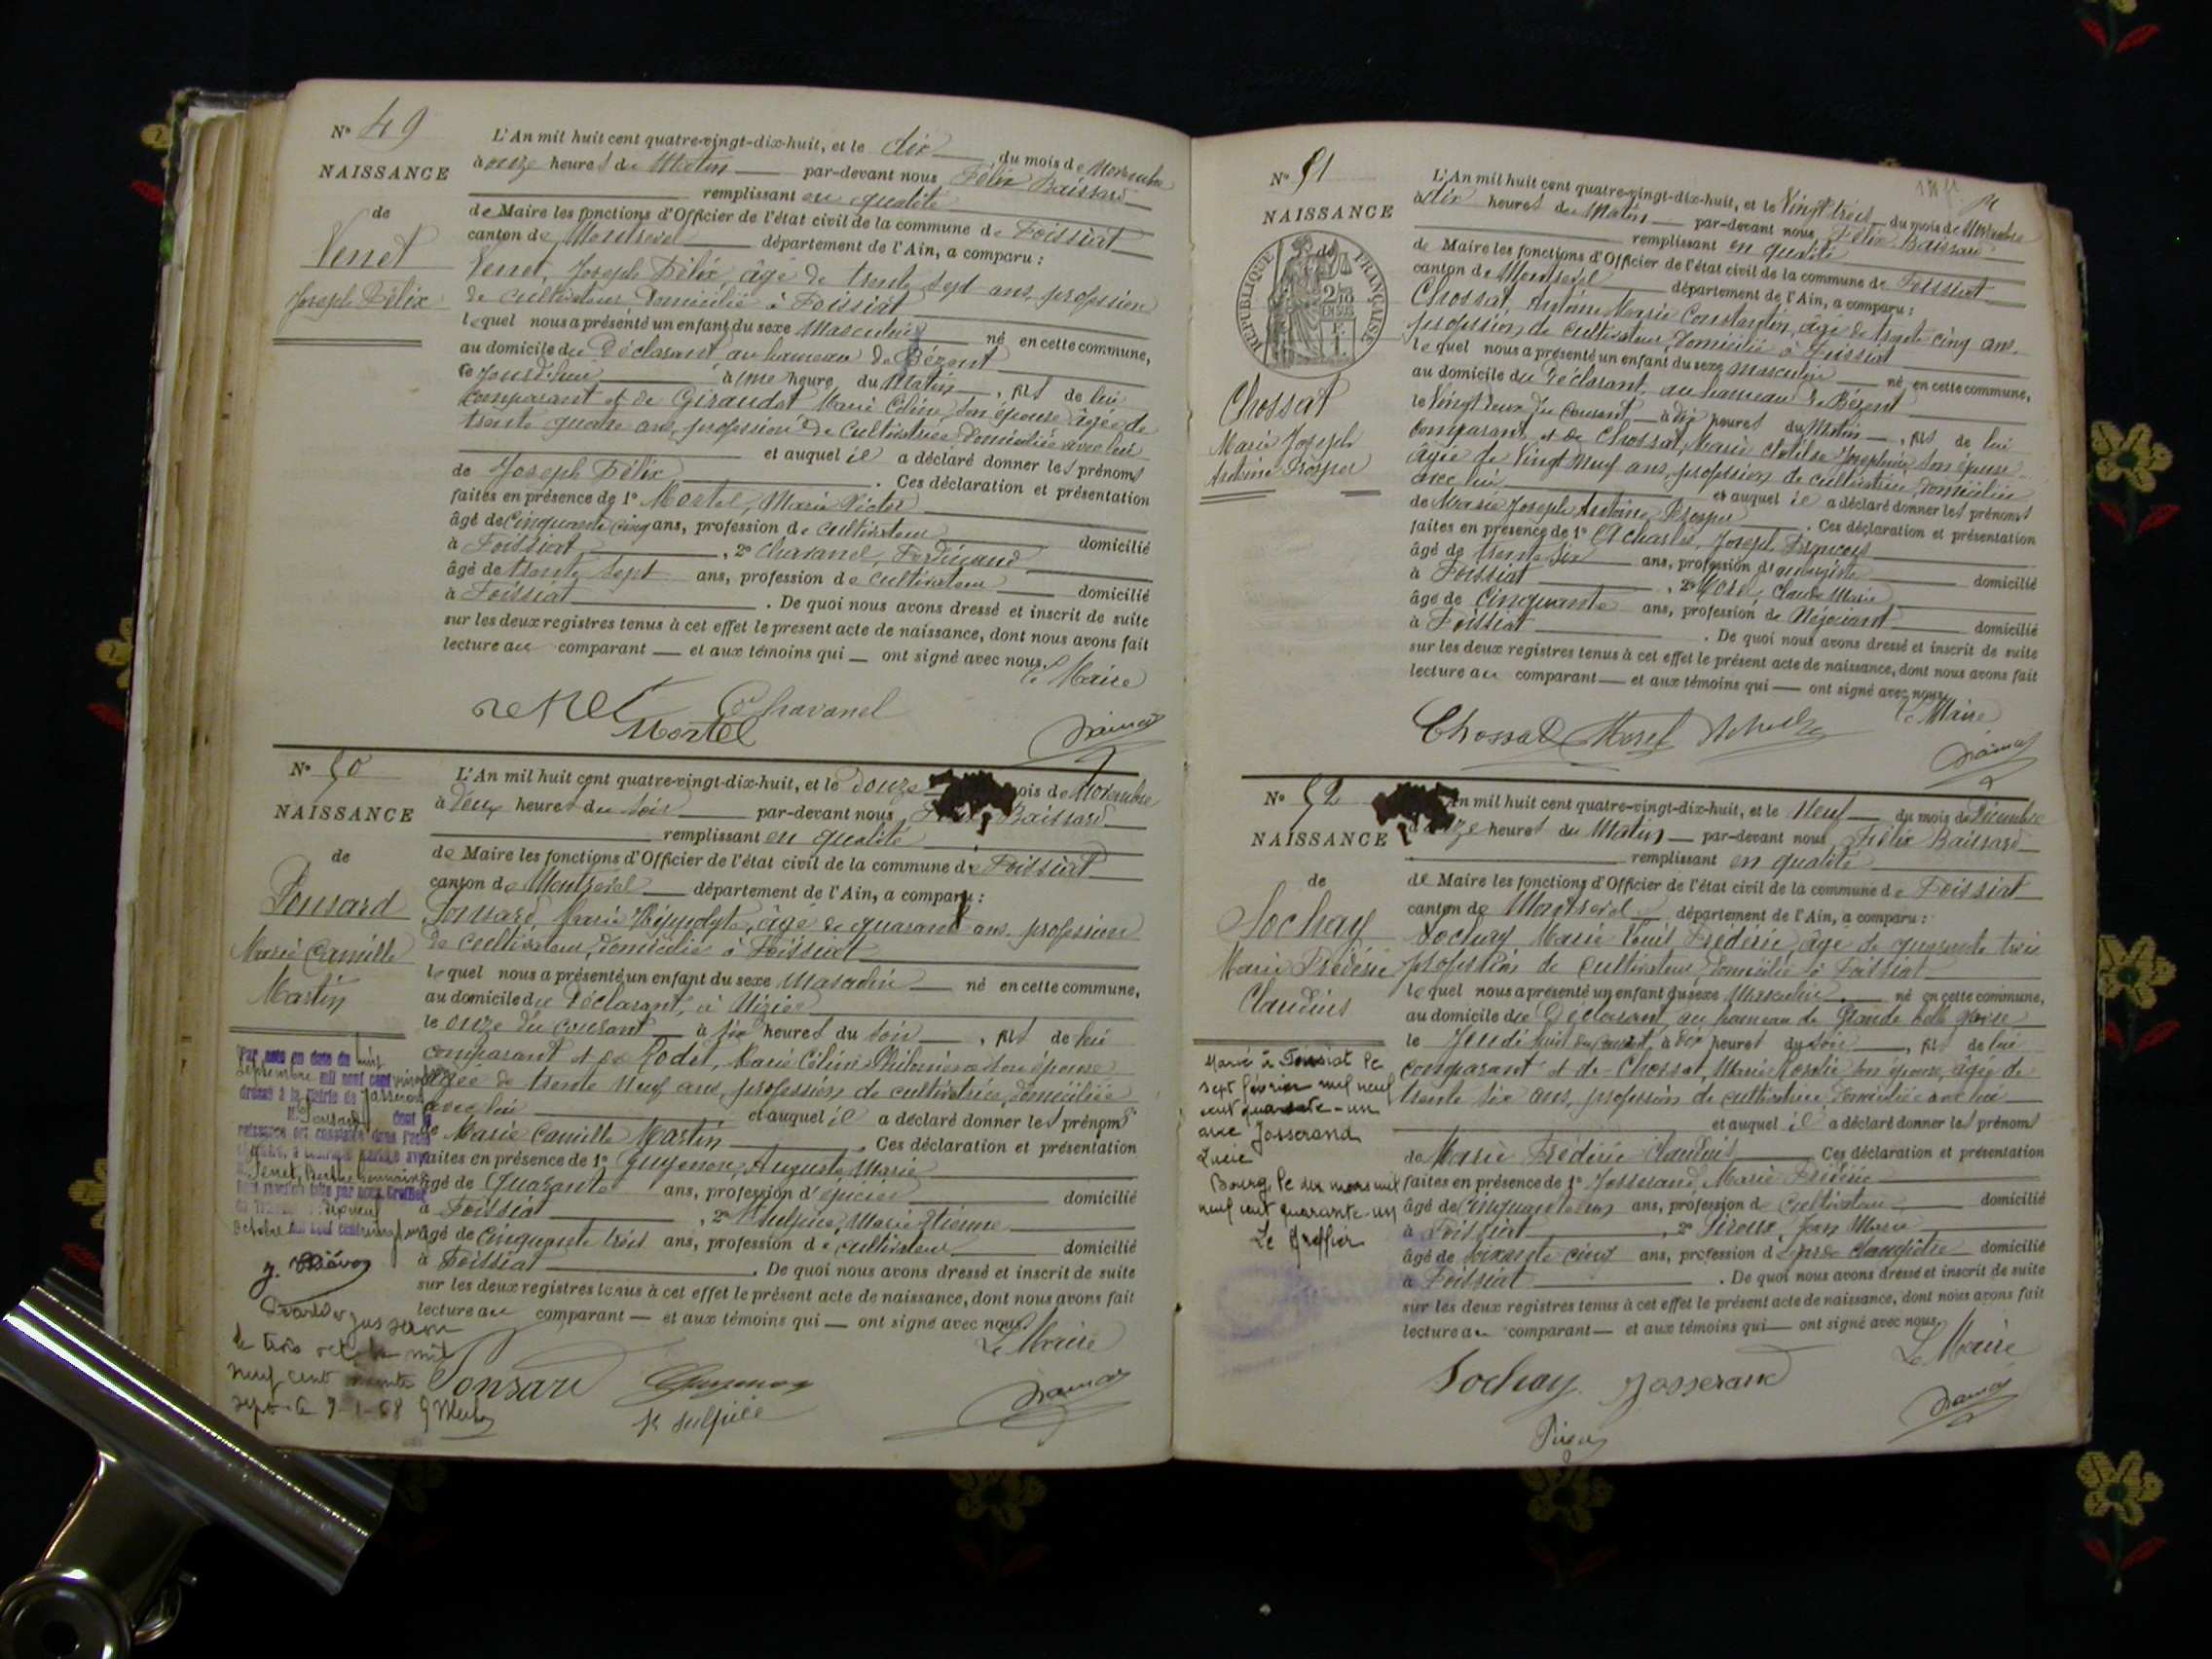 N° 49
NAISSANCE
de
Venet
Joseph Félix
L'An mil huit cent quatre-vingt-dix-huit, et le dix du mois de Novembre
à onze heures du Matin par-devant nous Félix Baissard
remplissant en qualité
de Maire les fonctions d'Officier de l'état civil de la commune de Foissiat
canton de Montrevel département de l'Ain, a comparu :
Venet, Joseph Félix âgé de trente sept ans, profession
de cultivateur domicilié à Foissiat
lequel nous a présenté un enfant du sexe Masculin né en cette commune,
au domicile du Déclarant au hameau de Bézent
ce jourd'hui à une heure du Matin, fils de lui
comparant et de Giraudet Marie Céline son épouse âgée de
trente quatre ans, profession de cultivatrice domiciliée avec lui
et auquel il a déclaré donner les prénoms
de Joseph Félix. Ces déclaration et présentation
faites en présence de 1° Mortel, Marie Victor
âgé de cinquante cinq ans, profession de cultivateur domicilié
à Foissiat, 2° Chavanel, Ferdinand
âgé de trente sept ans, profession de cultivateur domicilié
à Foissiat. De quoi nous avons dressé et inscrit de suite
sur les deux registres tenus à cet effet le présent acte de naissance, dont nous avons fait
lecture au comparant et aux témoins qui ont signé avec nous.
Le Maire
Venet Chavanel
Mortel
N° 50
NAISSANCE
de
Ponsard
Marie Camille
Martin
L'An mil huit cent quatre-vingt-dix-huit, et le Douze mois de Novembre
à Deux heures du soir par-devant nous Baissard
remplissant en qualité
de Maire les fonctions d'Officier de l'état civil de la commune de Foissiat
canton de Montrevel département de l'Ain, a comparu :
Ponsard, Marie Hippolyte, âgé de quarante ans, profession
de cultivateur, domicilié à Foissiat
lequel nous a présenté un enfant du sexe Masculin né en cette commune,
au domicile du Déclarant, à
le onze du courant à six heures du soir, fils de lui
comparant et de Rodet, Marie Céline Philomène son épouse
âgée de trente neuf ans, profession de cultivatrice, domiciliée
avec lui et auquel il a déclaré donner les prénoms
de Marie Camille Martin. Ces déclaration et présentation
faites en présence de 1° Guyennon, Auguste Marie
âgé de Quarante ans, profession d'épicier domicilié
à Foissiat, 2° Sulpice, Marie Etienne
âgé de Cinquante trois ans, profession de cultivateur domicilié
à Foissiat. De quoi nous avons dressé et inscrit de suite
sur les deux registres tenus à cet effet le présent acte de naissance, dont nous avons fait
lecture au comparant et aux témoins qui ont signé avec nous.
Le Maire
Ponsard
Sulpice
Par acte en date du huit
Septembre mil neuf cent
dressé à la Mairie de Jasseron
Ponsard dont la
le trois
neuf cent
N° 51
NAISSANCE
de
RÉPUBLIQUE FRANÇAISE
2/10
EN SUS
Chossat
Marie Joseph
Antoine Prosper
L'An mil huit cent quatre-vingt-dix-huit, et le Vingt trois du mois de Novembre
à dix heures du Matin par-devant nous Félix Baissard
remplissant en qualité
de Maire les fonctions d'Officier de l'état civil de la commune de Foissiat
canton de Montrevel département de l'Ain, a comparu :
Chossat, Antoine Marie Constantin, âgé de trente cinq ans,
profession de cultivateur, domicilié à Foissiat
lequel nous a présenté un enfant du sexe masculin né en cette commune,
au domicile du Déclarant, au hameau de Bézent
le Vingt deux du courant à dix heures du Matin, fils de lui
comparant, et de Chossat, Marie Clotilde Joséphine, son épouse
âgée de Vingt neuf ans, profession de cultivatrice, domiciliée
avec lui et auquel il a déclaré donner les prénoms
de Marie Joseph Antoine Prosper. Ces déclaration et présentation
faites en présence de 1° Joseph François
âgé de trente six ans, profession d'aubergiste domicilié
à Foissiat, 2° Morel, Claude Marie
âgé de Cinquante ans, profession de Négociant domicilié
à Foissiat. De quoi nous avons dressé et inscrit de suite
sur les deux registres tenus à cet effet le présent acte de naissance, dont nous avons fait
lecture au comparant et aux témoins qui ont signé avec nous.
Le Maire
Chossat Morel
N° 52
NAISSANCE
de
Sochay
Marie Frédéric
Claudius
An mil huit cent quatre-vingt-dix-huit, et le Neuf du mois de Décembre
à onze heures du Matin par-devant nous Félix Baissard
remplissant en qualité
de Maire les fonctions d'Officier de l'état civil de la commune de Foissiat
canton de Montrevel département de l'Ain, a comparu :
Sochay Marie Louis Frédéric, âgé de quarante trois
profession de cultivateur, domicilié à Foissiat
lequel nous a présenté un enfant du sexe Masculin né en cette commune,
au domicile du Déclarant, au hameau de Grande
le Jeudi huit du courant, à dix heures du soir, fils de lui
comparant et de Chossat, Marie Rosalie son épouse, âgée de
trente six ans, profession de cultivatrice domiciliée avec lui
et auquel il a déclaré donner les prénoms
de Marie Frédéric Claudius Ces déclaration et présentation
faites en présence de 1° Josserand, Marie Frédéric
âgé de Cinquante un ans, profession de Cultivateur domicilié
à Foissiat, 2° Jean Marie
âgé de soixante cinq ans, profession de garde champêtre domicilié
à Foissiat. De quoi nous avons dressé et inscrit de suite
sur les deux registres tenus à cet effet le présent acte de naissance, dont nous avons fait
lecture au comparant et aux témoins qui ont signé avec nous.
Le Maire
Sochay Josserand
Marié à Foissiat le
sept février mil neuf
cent quarante-un
avec Josserand
Lucie
Bourg, le dix mars mil
neuf cent quarante-un
Le Greffier